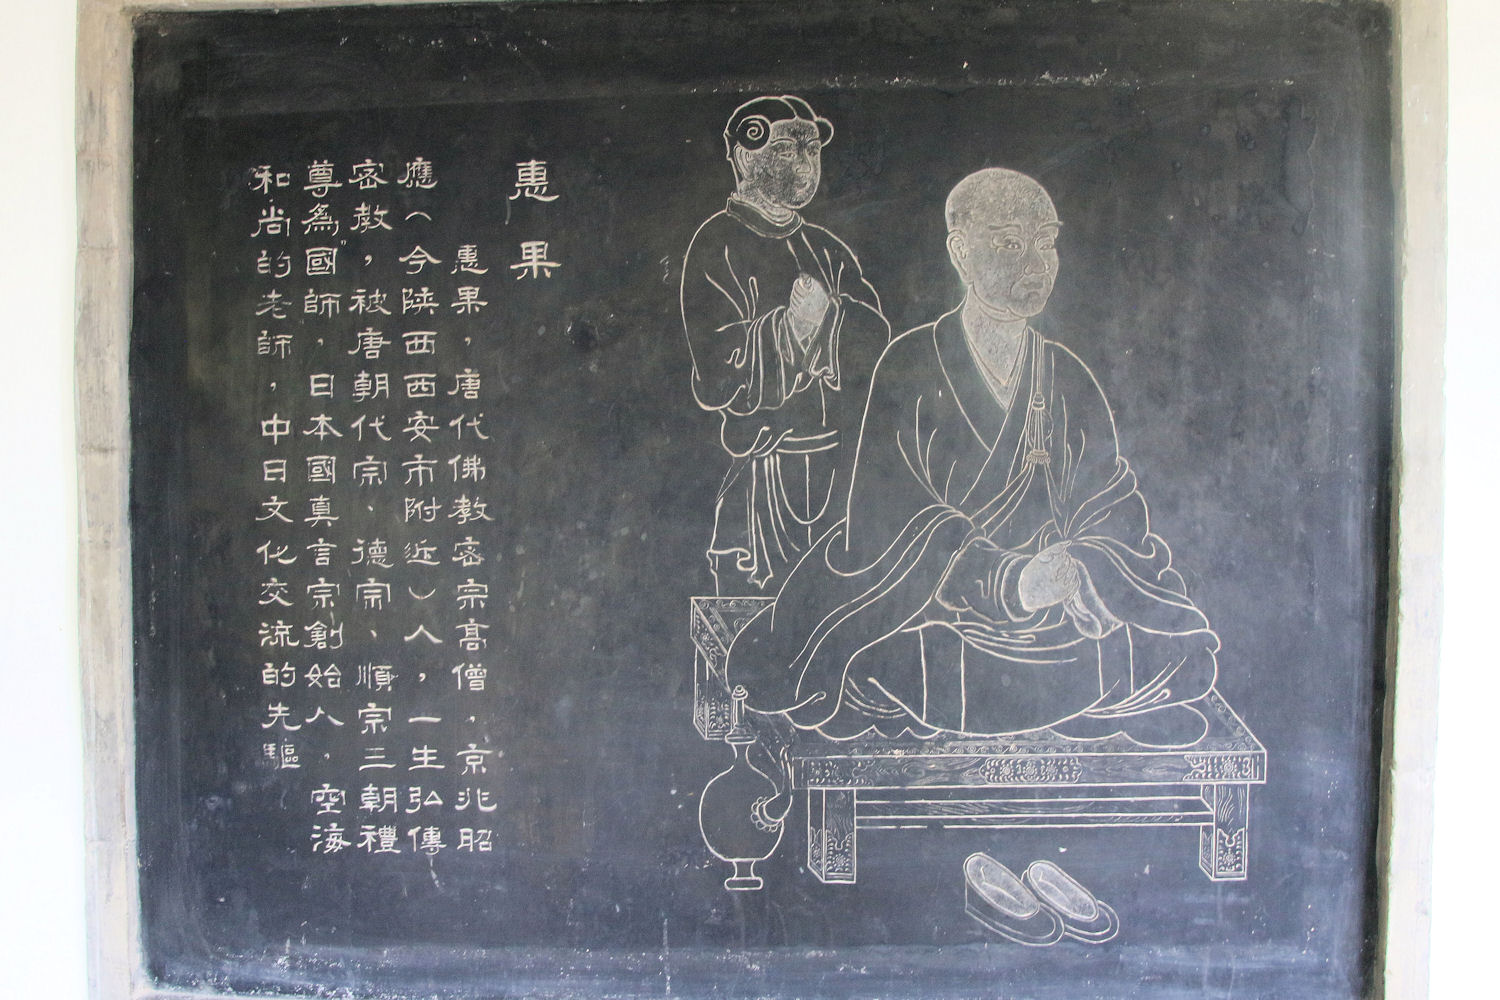 惠果
惠果，唐代佛教密宗高僧，京兆昭
應（今陝西西安市附近）人，一生弘傳
密教，被唐朝代宗、德宗、順宗三朝禮
尊為國師，日本國真言宗創始人，空海
和尚的老師，中日文化交流的先驅